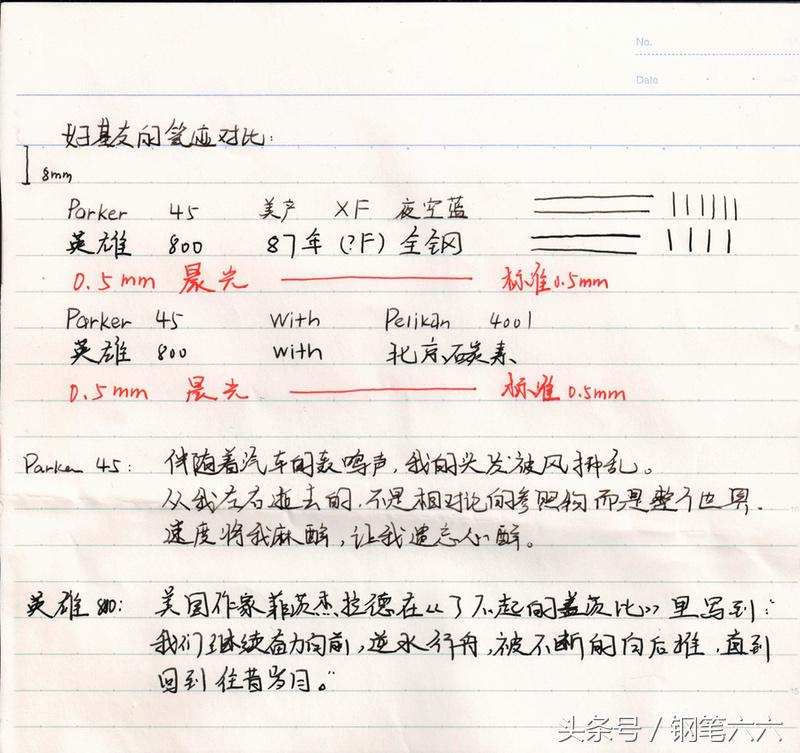 No.
Date
好基友的笔迹对比:
8mm
Parker 45 美产 XF 夜空蓝
英雄 800 87年 (?F) 全钢
0.5mm 晨光 标准0.5mm
Parker 45 with Pelikan 4001
英雄 800 with 北京碳素
0.5mm 晨光 标准0.5mm
Parker 45: 伴随着汽车的轰鸣声,我的头发被风拂乱。
从我左右逝去的,不是相对论的参照物而是整个世界.
速度将我麻醉,让我遗忘心醉。
英雄 800: 美国作家菲茨杰拉德在《了不起的盖茨比》里写到:"
我们继续奋力向前,逆水行舟,被不断的向后推,直到
回到往昔岁月。"
头条号 / 钢笔六六